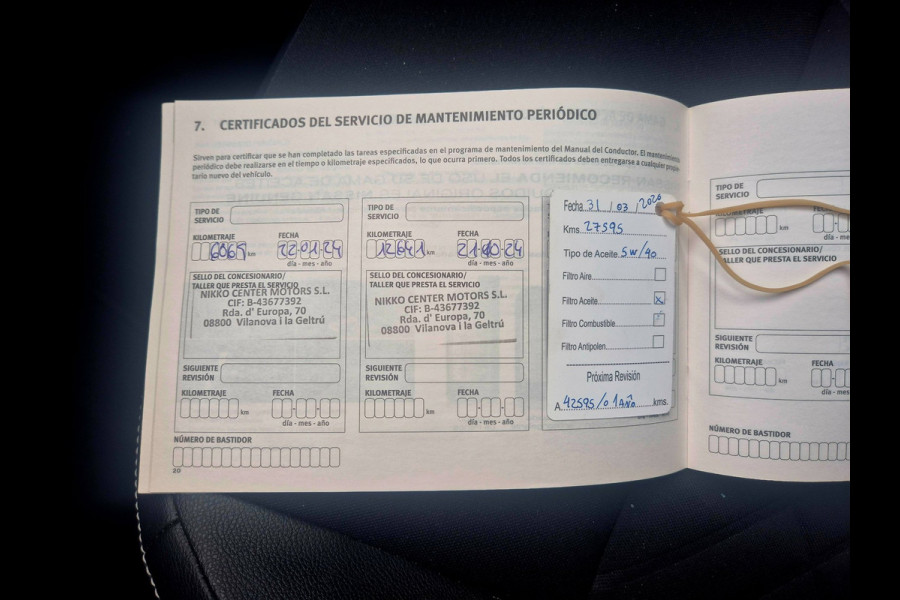 7. CERTIFICADOS DEL SERVICIO DE MANTENIMIENTO PERIÓDICO
Sirven para certificar que se han completado las tareas especificadas en el programa de mantenimiento del Manual del Conductor. El mantenimiento
periódico debe realizarse en el tiempo o kilometraje especificados, lo que ocurra primero. Todos los certificados deben entregarse a cualquier
tario nuevo del vehículo.
TIPO DE
SERVICIO
KILOMETRAJE FECHA
6065 km 22-01-24
día - mes - año
SELLO DEL CONCESIONARIO/
TALLER QUE PRESTA EL SERVICIO
NIKKO CENTER MOTORS S.L.
CIF: B-43677392
Rda. d' Europa, 70
08800 Vilanova i la Geltrú
SIGUIENTE
REVISIÓN
KILOMETRAJE FECHA
km
día - mes - año
NÚMERO DE BASTIDOR
20
TIPO DE
SERVICIO
KILOMETRAJE FECHA
12641 km 21-10-24
día - mes - año
SELLO DEL CONCESIONARIO/
TALLER QUE PRESTA EL SERVICIO
NIKKO CENTER MOTORS S.L.
CIF: B-43677392
Rda. d' Europa, 70
08800 Vilanova i la Geltrú
SIGUIENTE
REVISIÓN
KILOMETRAJE FECHA
km
día - mes - año
Fecha 31 / 03 / 2026
Kms. 27595
Tipo de Aceite 5W/40
Filtro Aire
Filtro Aceite X
Filtro Combustible
Filtro Antipolen
Próxima Revisión
A 42595/o 1 AÑO kms.
TIPO DE
SERVICIO
KILOMETRAJE
km
día
SELLO DEL CONCESIONARIO/
TALLER QUE PRESTA EL SERVICIO
SIGUIENTE
REVISIÓN
KILOMETRAJE FECHA
km
día - mes
NÚMERO DE BASTIDOR